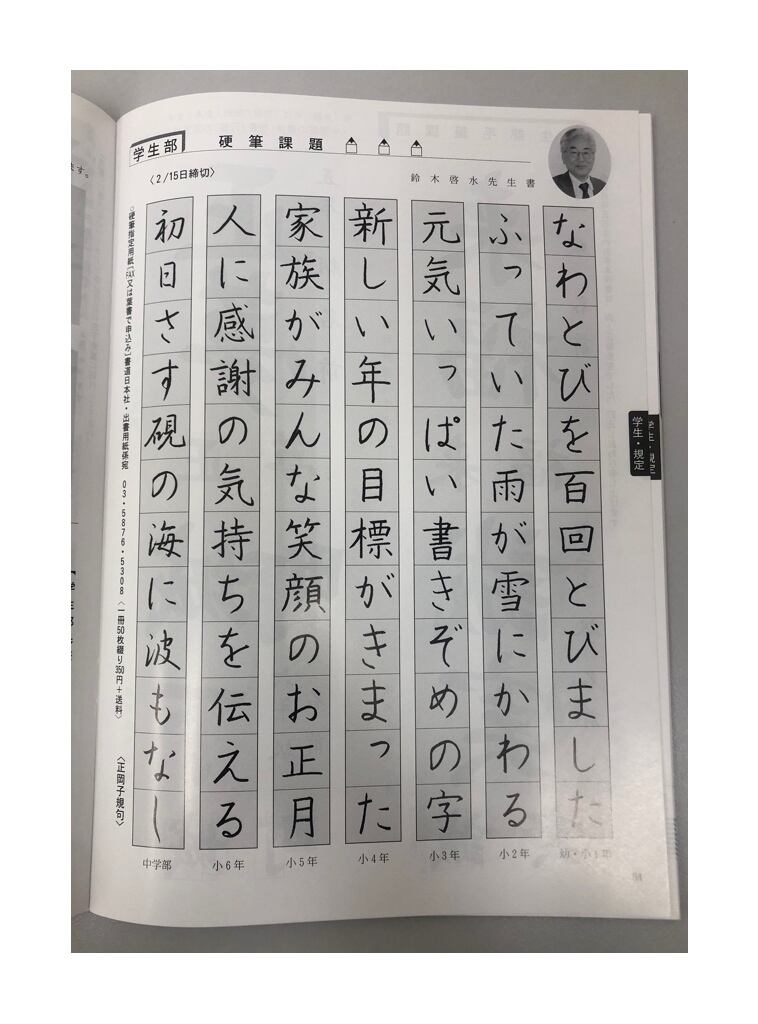 学生部
硬筆課題
〈2/15日締切〉
鈴木啓水先生書
なわとびを百回とびました
幼・小1年
ふっていた雨が雪にかわる
小2年
元気いっぱい書きぞめの字
小3年
新しい年の目標がきまった
小4年
家族がみんな笑顔のお正月
小5年
人に感謝の気持ちを伝える
小6年
初日さす硯の海に波もなし
中学部
〈正岡子規句〉
○硬筆指定用紙〔FAX又は葉書で申込み〕書道日本社・出書用紙係宛 03・5876・5308 〈一冊50枚綴り350円+送料〉
学生・規定
学生・規定
ます。